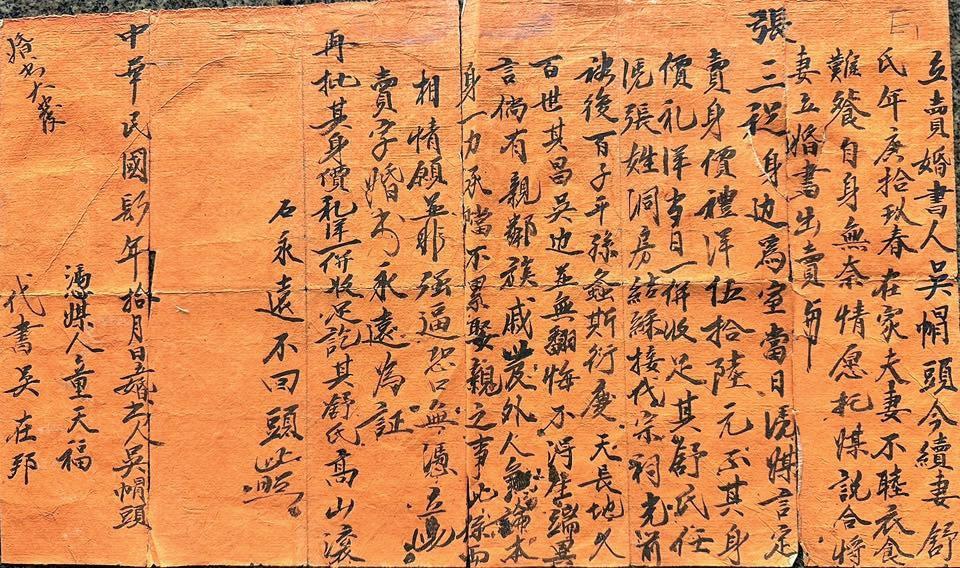 立賣婚書人吳帽頭今續妻舒
氏年庚拾玖春在家夫妻不睦衣食
難餐自身無奈情愿托媒説合將
妻立婚書出賣與
張三祝身边爲室當日凭媒言定
賣身價禮洋伍拾陸元正其身
價礼洋当日一併收足其舒氏任
凭張姓洞房結綵接代宗祠光前
後百子千孫螽斯衍慶天長地久
百世其昌吳边並無翻悔不得生端異
言倘有親鄰族戚外人無論本
身一力承當不累娶親之事此係両
相情願並非强逼恐口無憑立此
賣字婚书永遠為証
再批其身價礼洋一併收足訖其舒氏高山滾
石永遠不回頭此照
中華民國年拾月日立婚之人吳帽頭
憑媒人童天福
代書吳在邦
婚书大發